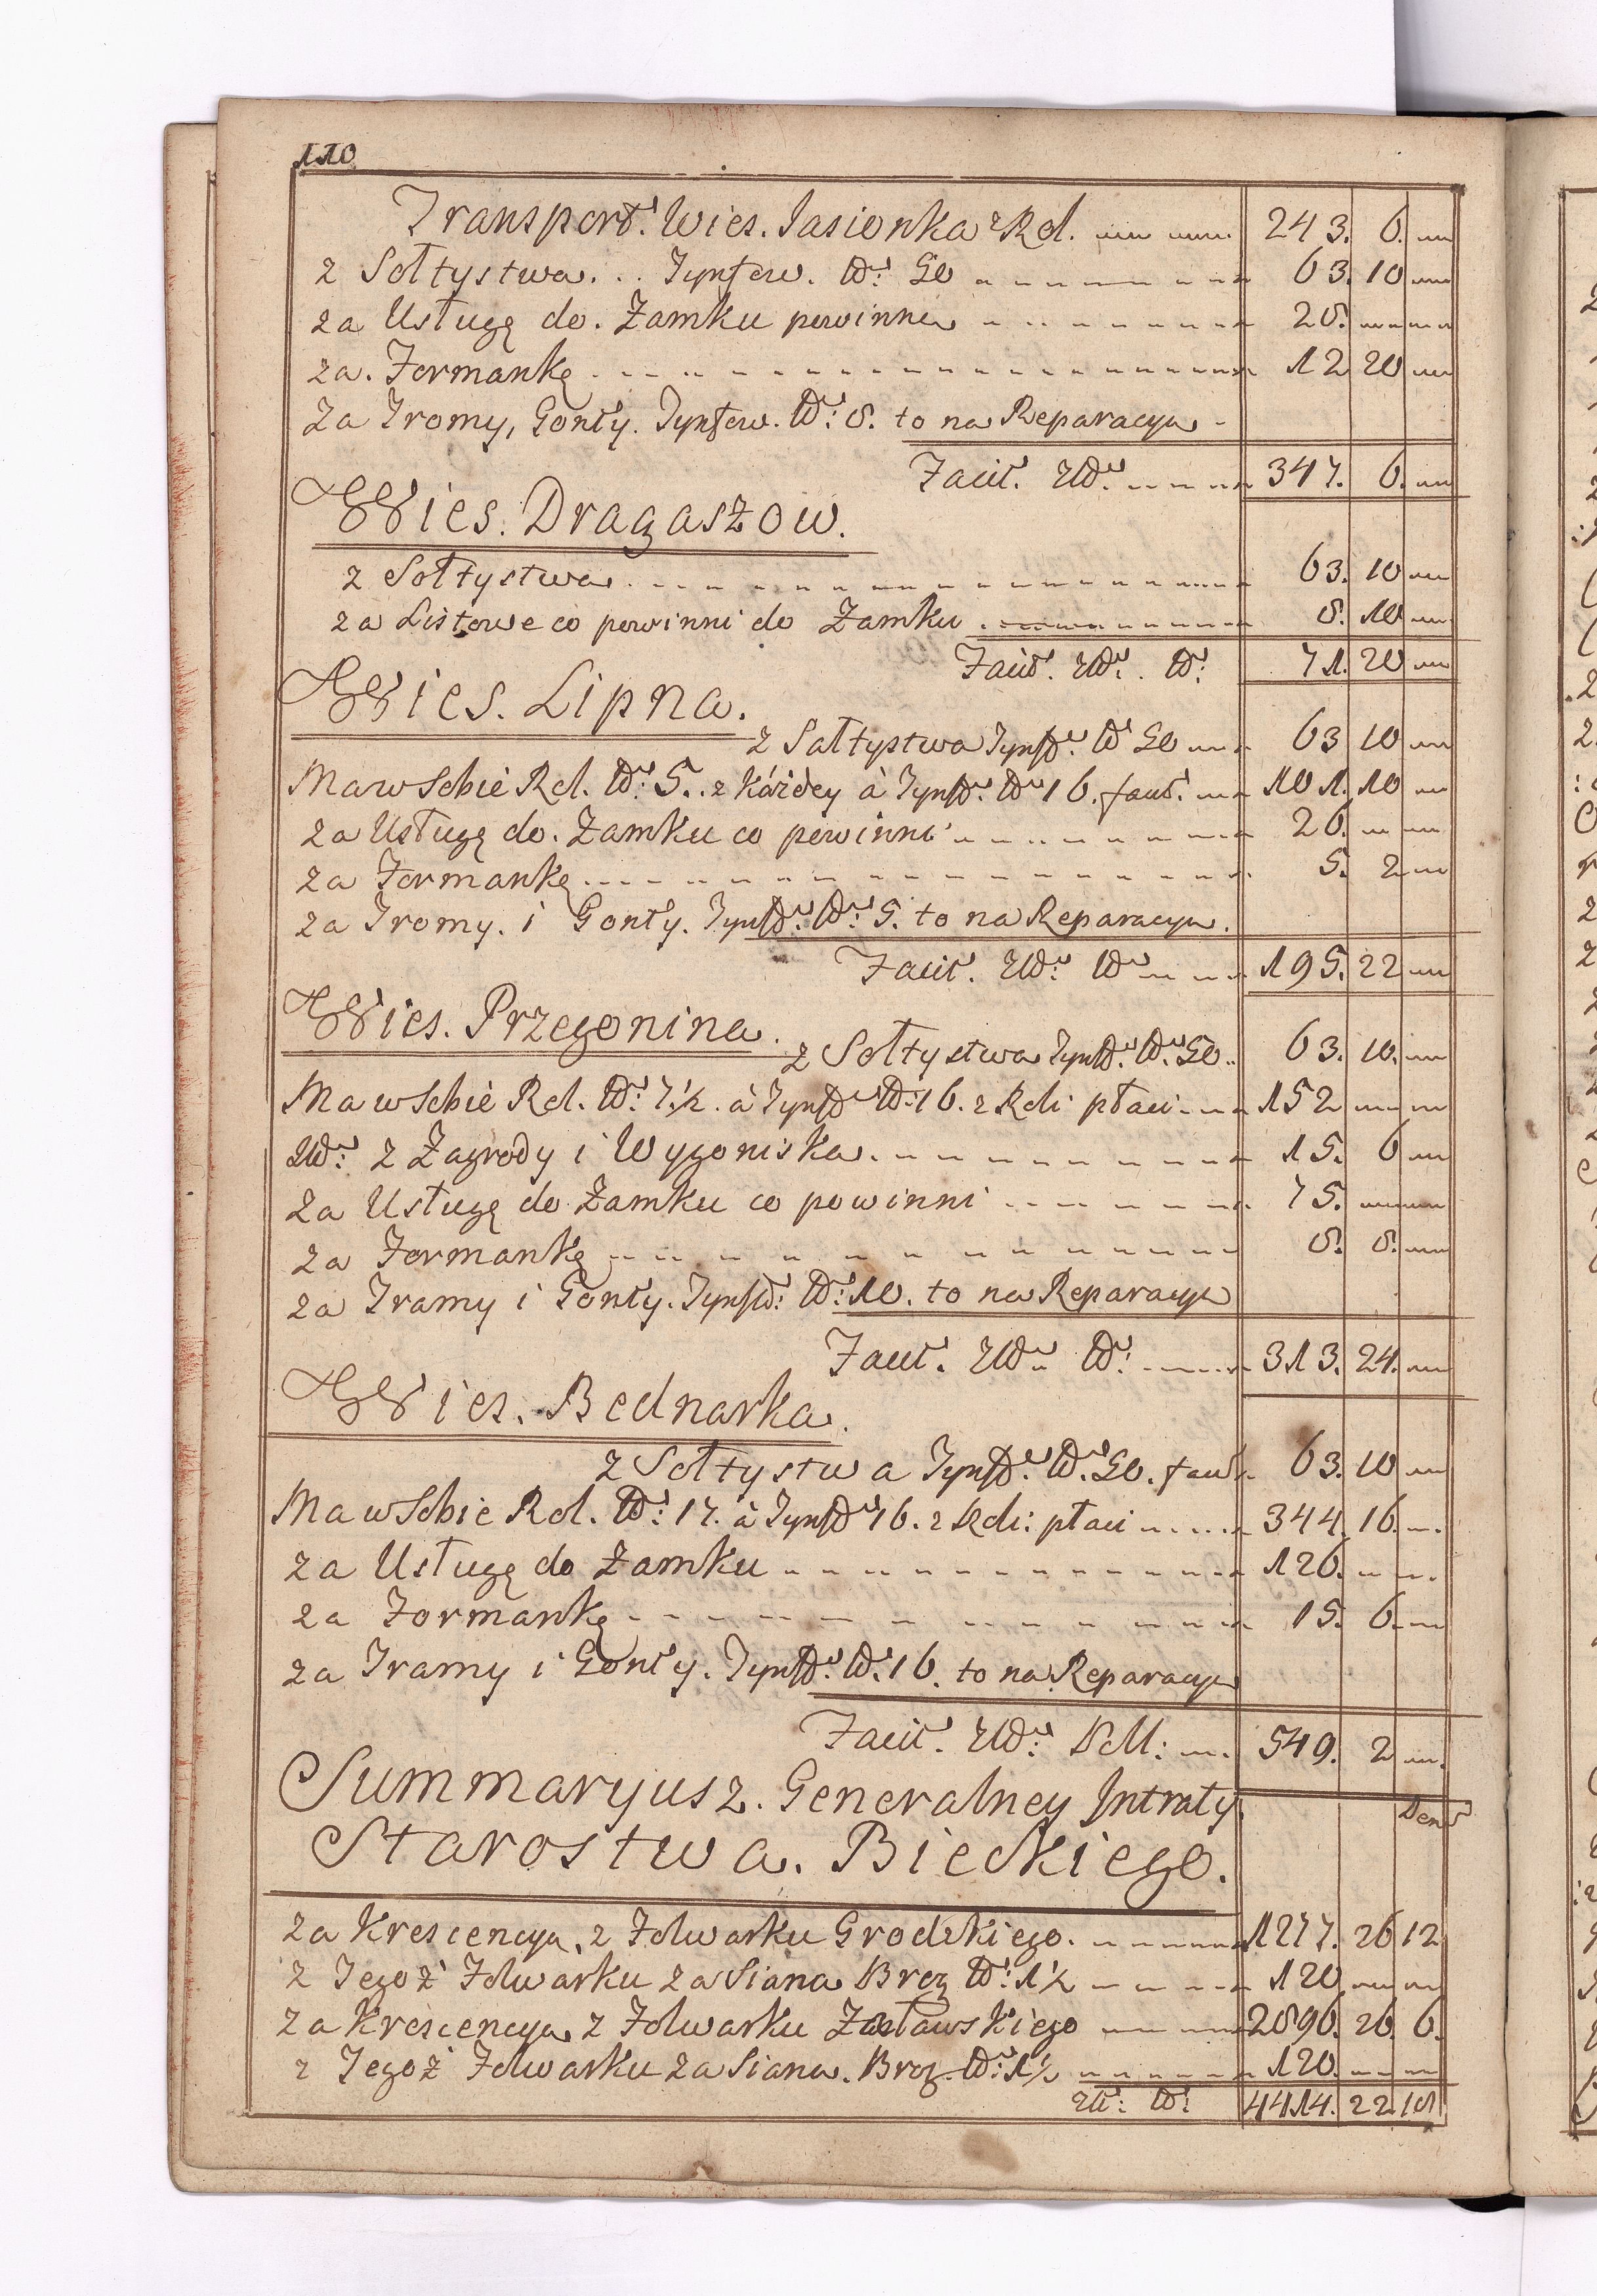 110
Transport. Wies. Jasionka z Rol. 243. 6.
z Sołtystwa. . . Tynfow. Nro: 50 63. 10
za Usługę do. Zamku powinne 28.
za. Formankę 12 20
Za Tromy, Gonty. Tynfow. Nro: 8. to na Reparacya
Facit. Zł: 347. 6.
Wies. Dragaszow.
z Sołtystwa 63. 10
za Listowe co powinni do Zamku 8. 10
Facit. Zł: Nro: 71. 20
Wies. Lipna.
z Sałtystwa Tynfów: Nro 50 63 10
Ma w Sobie Rol. Nro: 5. z Każdey à Tynfów: Nro 16. facit. 101. 10
za Usługę do. Zamku co powinni 26.
za Formankę 5. 2
za Tromy. i Gonty. Tynfów: Nro: 5. to na Reparacya.
Facit. Zł: Nro 195. 22
Wies. Przegonina.
z Sołtystwa Tynfów: Nro: 50. 63. 10.
Ma w Sobie Rol. Nro: 7.½. à Tynfów Nro: 16. z Roli płaci 152
Zł: z Zagrody i Wygoniska. 15. 6
Za Usługę do Zamku co powinni 75.
za Formankę 8. 8.
za Tramy i Gonty. Tynfów: Nro: 10. to na Reparacyą
Facit. Zł: Nro: 313. 24.
Wies. Bednarka.
z Sołtystwa Tynfów: Nro: 50. facit. 63. 10
Ma w Sobie Rol. Nro: 17. à Tynfów 16. z Roli: płaci 344. 16.
za Usługę do Zamku 126.
za Formankę 15. 6.
za Tramy i Gonty. Tynfów: Nro: 16. to na Reparacyą
Facit. Zł: 549. 2
Summaryusz. Generalney Intraty.
Den
Starostwa. Bieckiego.
Za Krescencya, z Folwarku Grodzkiego. 1277. 26 12
z Tegoż Folwarku za Siana Brog Nro: 1½ 120
Za Krescencya z Folwarku Zasławskiego 2896. 26. 6.
z Tegoż Folwarku za Siana. Brog. Nro: 1½ 120.
Zł: Nro: 4414. 22. 18